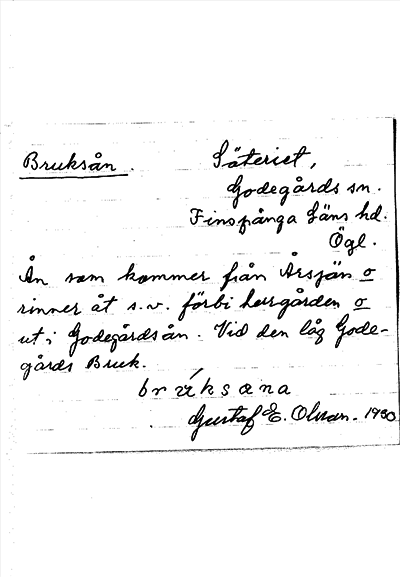 Bruksån.
Säteriet,
Godegårds sn.
Finspånga Läns hd.
Ögl.
Ån som kommer från Årsjön o
rinner åt s.v. förbi herrgården o
ut i Godegårdsån. Vid den låg Gode-
gårds Bruk.
brúksæna
Gustaf E. Olsson. 1930